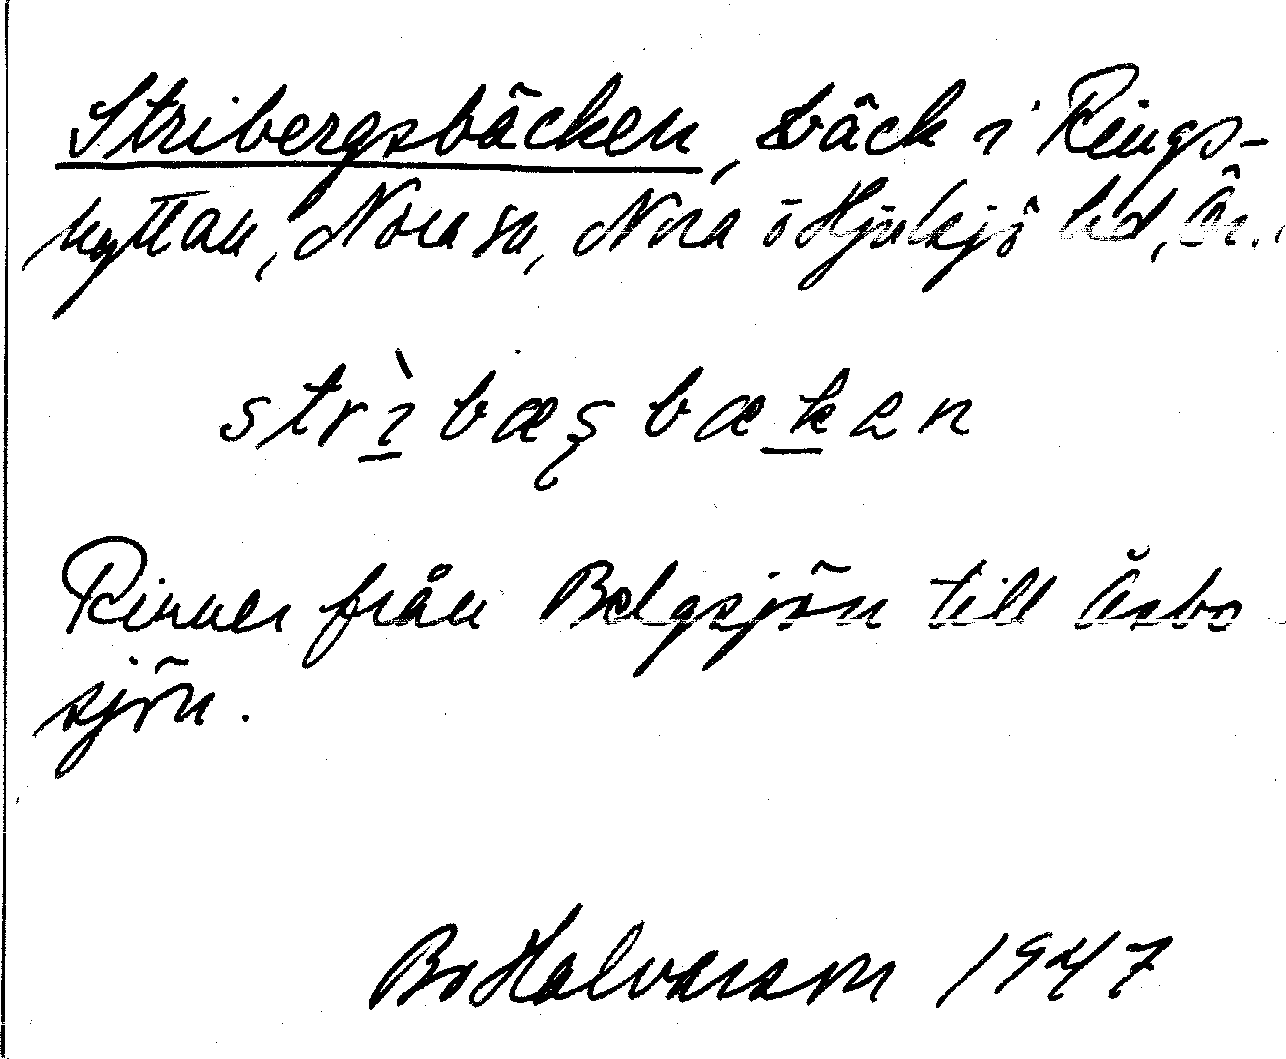 Stribergsbäcken, bäck i Rings-
hyttan, Nora sn, Nora o Hjulsjö hd, Ör.
strìbæşbækən
Rinner från Belgsjön till Åsbo
sjön.
Bo Halvarson 1947